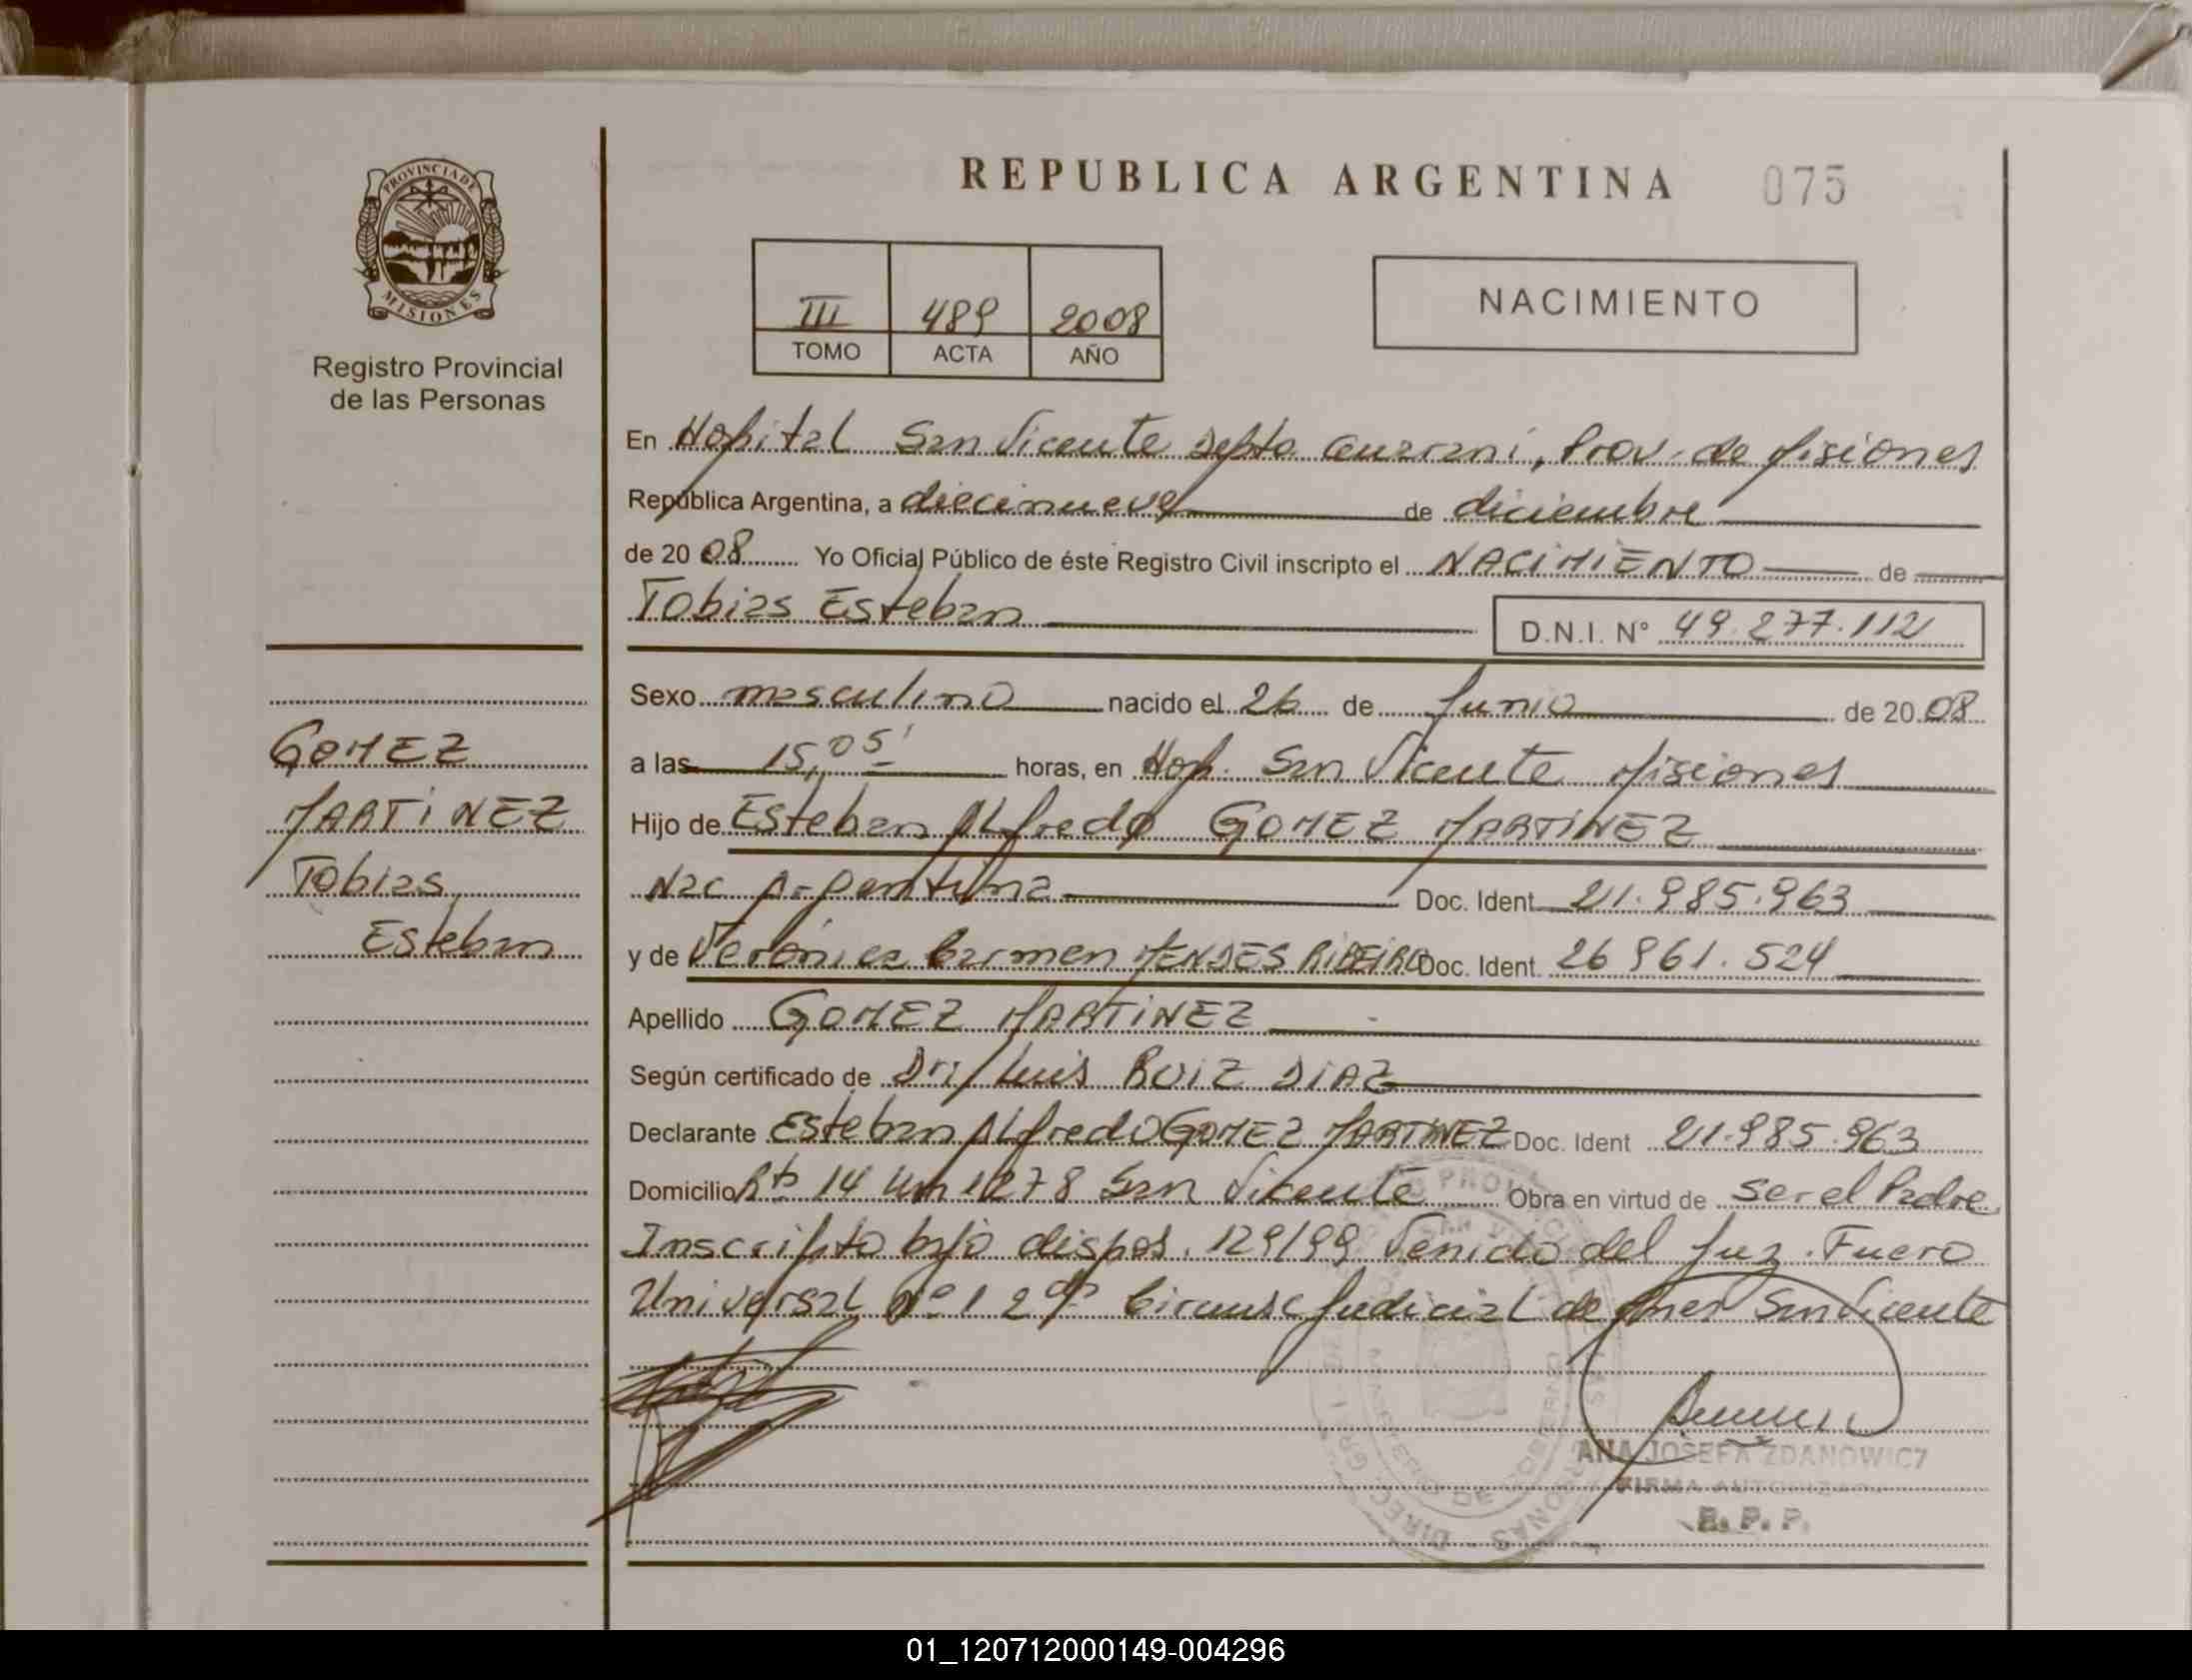 REPUBLICA ARGENTINA 075
PROVINCIA DE MISIONES
Registro Provincial
de las Personas
III 489 2008
TOMO ACTA AÑO
NACIMIENTO
En Hospital San Vicente Depto Guarani, Prov. de Misiones
República Argentina, a diecinueve de diciembre
de 20 08 Yo Oficial Público de éste Registro Civil inscripto el NACIMIENTO de
Tobias Esteban D.N.I. N° 49.277.112
Sexo masculino nacido el 26 de Junio de 20 08
a las 15,05' horas, en Hosp. San Vicente Misiones
Hijo de Esteban Alfredo GOMEZ MARTINEZ
Nac Argentina Doc. Ident 21.985.963
y de Verónica Carmen MENDES RIBEIRO Doc. Ident. 26 961.524
Apellido GOMEZ MARTINEZ
Según certificado de Dr/ Luis RUIZ DIAZ
Declarante Esteban Alfredo GOMEZ MARTINEZ Doc. Ident 21.985.963
Domicilio Rta 14 Km 1278 San Vicente Obra en virtud de ser el Padre
Inscripto bajo dispos. 129/99 Venido del Juz. Fuero
Universal N° 1 2da Circunsc Judicial de San Vicente
GOMEZ
MARTINEZ
Tobias
Esteban
ANA JOSEFA ZDANOWICZ
FIRMA AUTORIZADA
R. P. P.
01_120712000149-004296